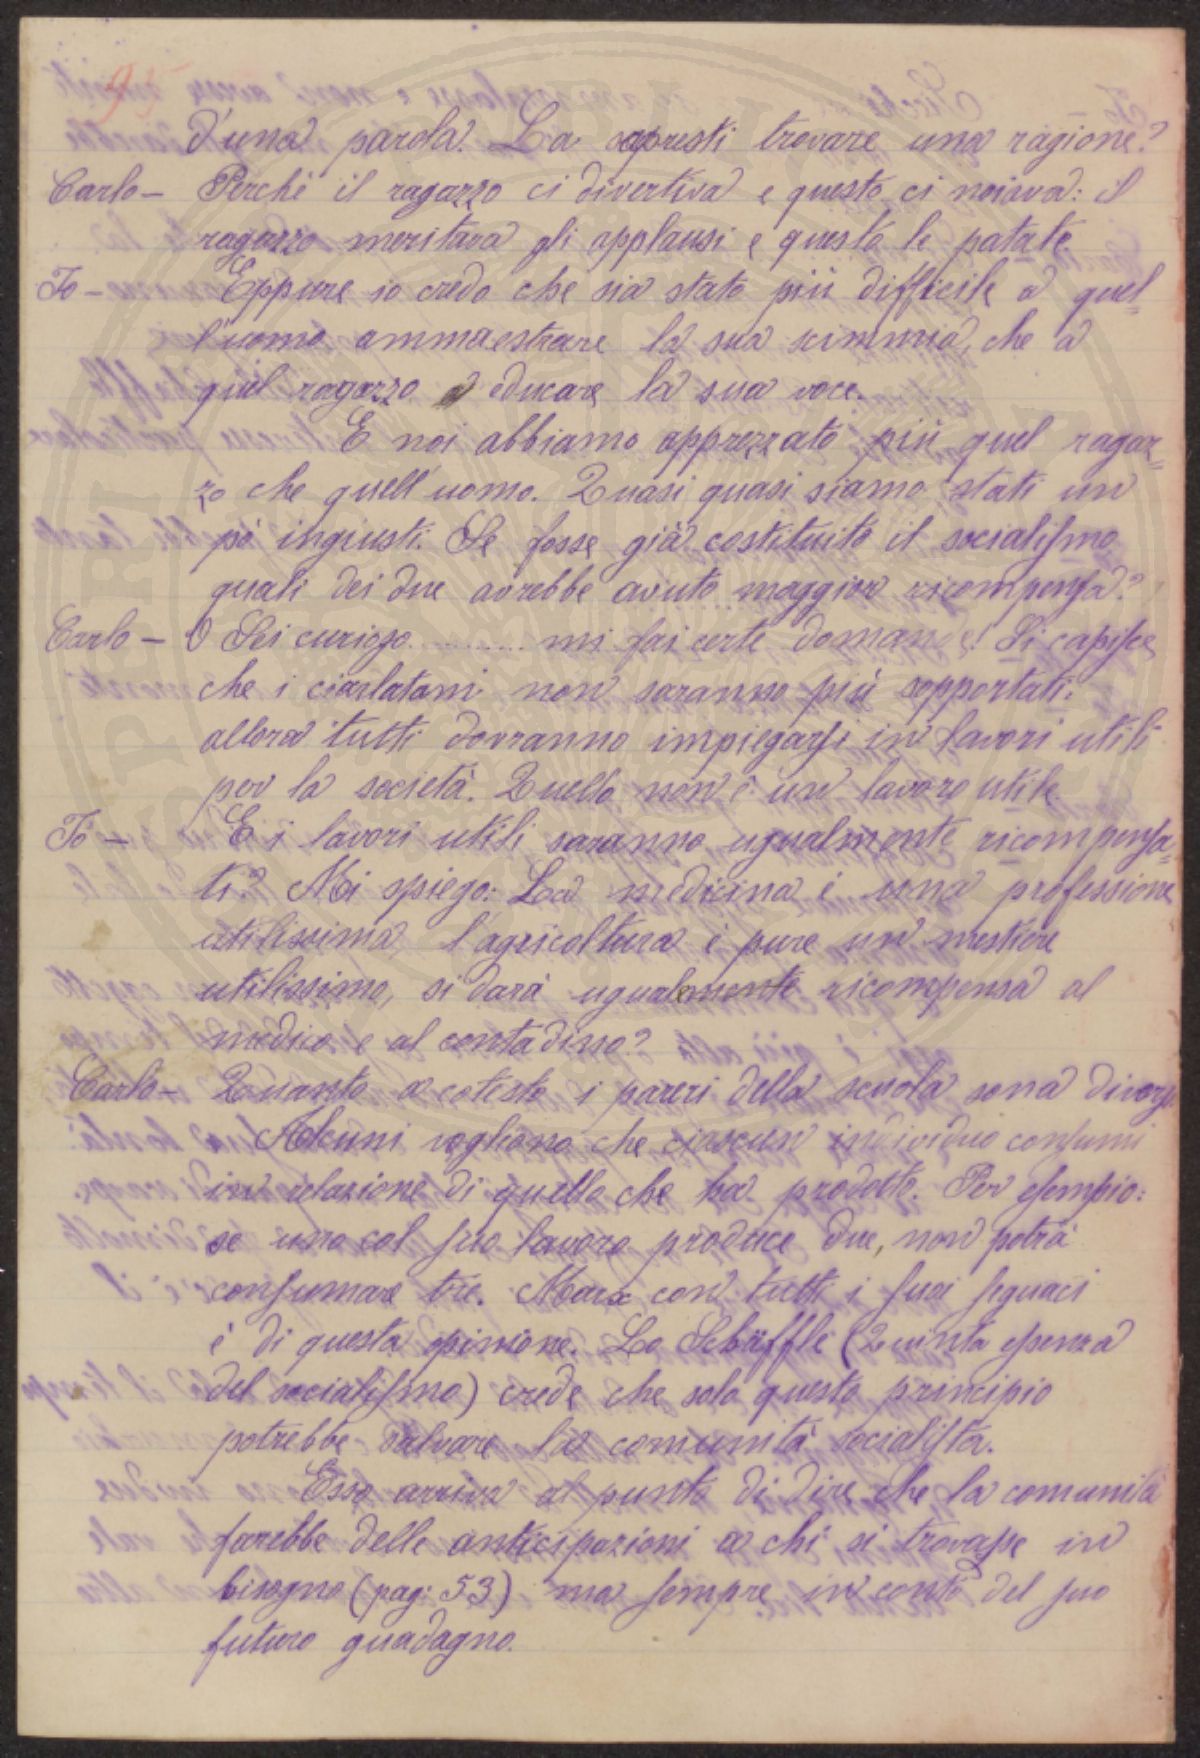 95
d'una parola. La sapresti trovare una ragione?
Carlo – Perchè il ragazzo ci divertiva e questo ci noiava: il
ragazzo meritava gli applausi e questo le patate.
Io – Eppure io credo che sia stato più difficile a quel=
l'uomo ammaestrare la sua scimmia, che a
quel ragazzo a educare la sua voce.
E noi abbiamo apprezzato più quel ragaz=
zo che quell'uomo. Quasi quasi siamo stati un
pò ingiusti. Se fosse già costituito il socialismo
quali dei due avrebbe avuto maggior ricompensa?
Carlo – O Sei curioso.......... mi fai certe domande! Si capisce
che i ciarlatani non saranno più sopportati:
allora tutti dovranno impiegarsi in lavori utili
per la società. Quello non è un lavoro utile.
Io – E i lavori utili saranno ugualmente ricompensa=
ti? Mi spiego: La medicina è una professione
utilissima, l'agricoltura è pure un mestiere
utilissimo, si darà ugualmente ricompensa al
medico e al contadino?
Carlo – Quanto a cotesto i pareri della scuola sono diversi
Alcuni vogliono che ciascun individuo consumi
in relazione di quello che ha prodotto. Per esempio:
se uno col suo lavoro produce due, non potrà
consumare tre. Marx con tutti i suoi seguaci
è di questa opinione. Lo Schäffle (Quinta essenza
del socialismo) crede che solo questo principio
potrebbe salvare la comunità socialista.
Esso arriva al punto di dire che la comunità
farebbe delle anticipazioni a chi si trovasse in
bisogno (pag: 53) ma sempre in conto del suo
futuro guadagno.